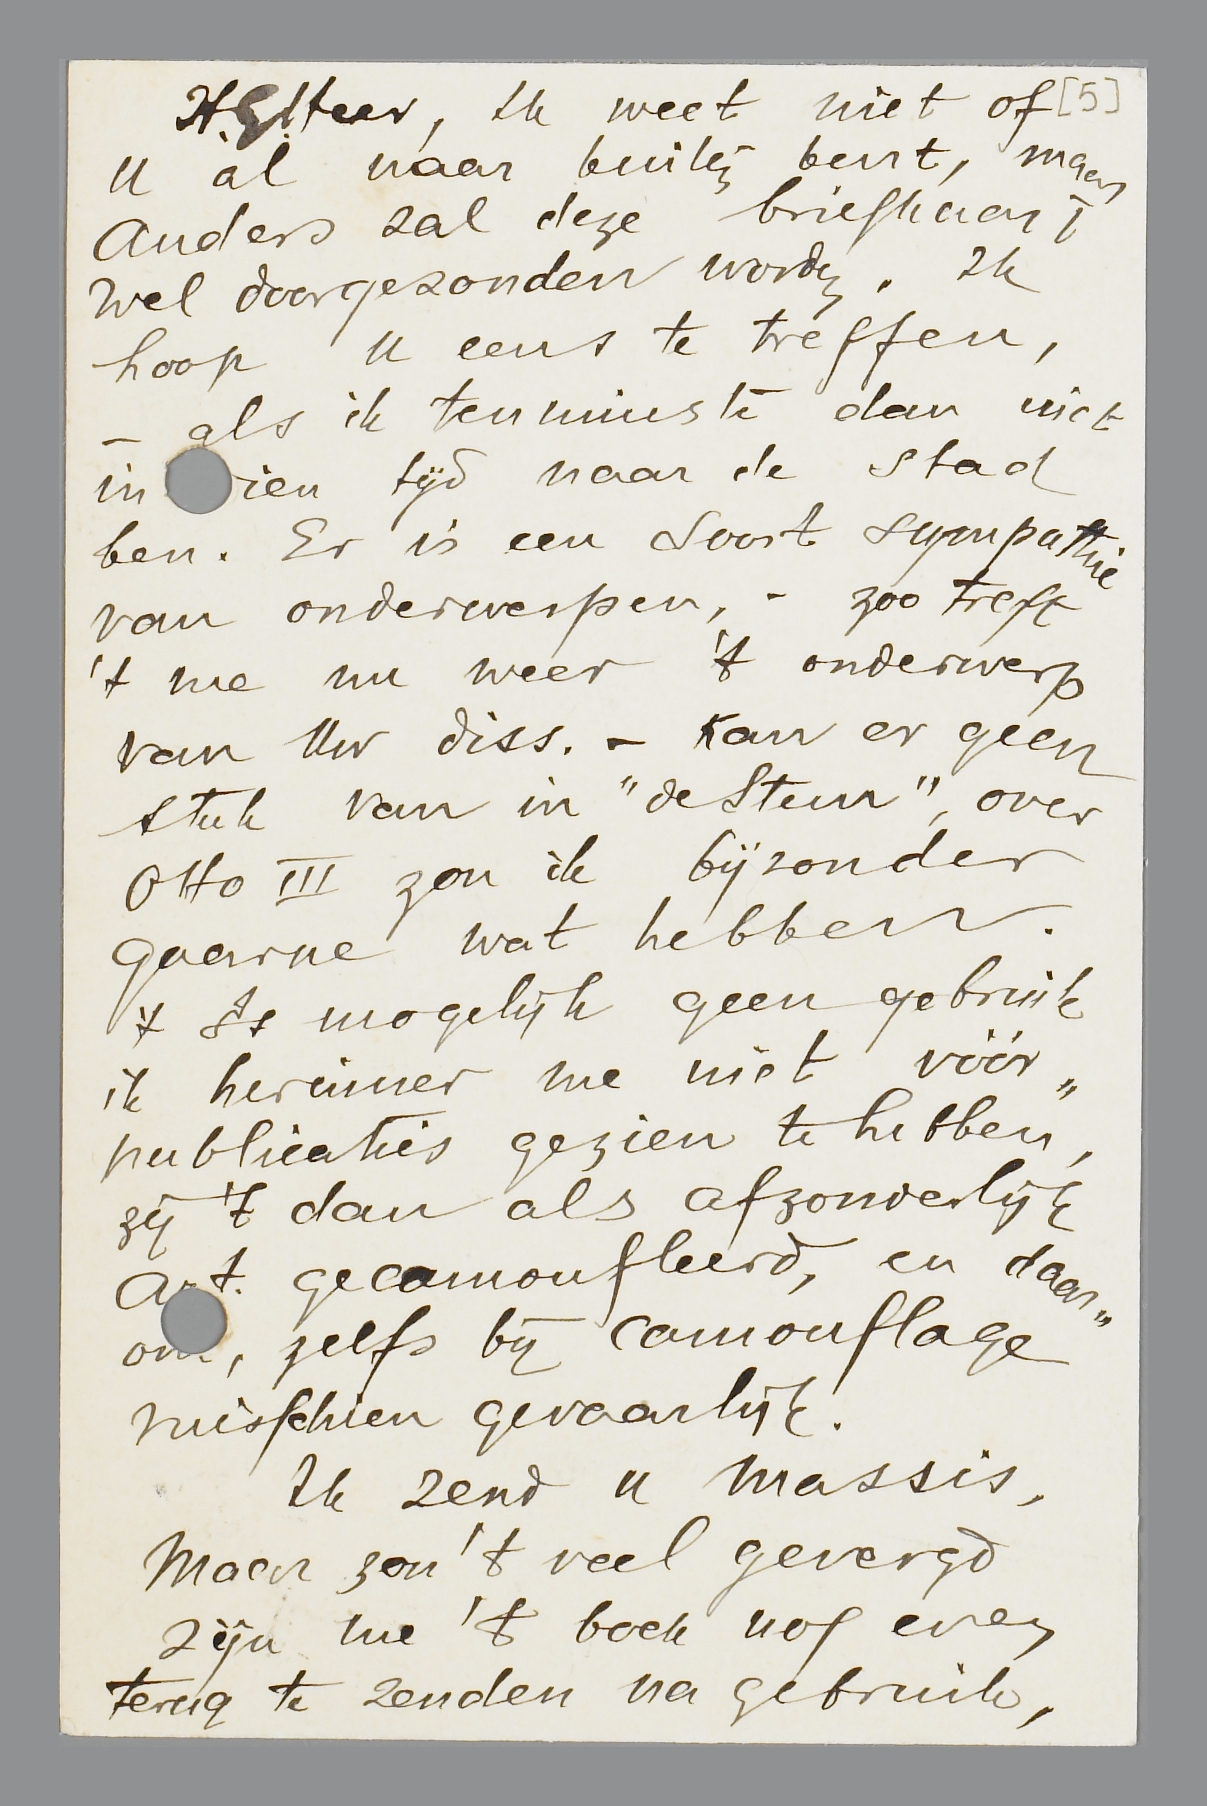 H.G. Heer, Ik weet niet of [5]
U al naar buiten bent, maar
Anders zal deze briefkaart
wel doorgezonden worden. Ik
hoop U eens te treffen,
– als ik tenminste dan niet
in dien tijd naar de stad
ben. Er is een soort sympathie
van onderwerpen, - zoo treft
't me nu weer 't onderwerp
van Uw diss. – Kan er geen
stuk van in "de Stem", over
Otto III zou ik bijzonder
gaarne wat hebben.
't Is mogelijk geen gebruik
ik herinner me niet vóór„
publicaties gezien te hebben,
zij 't dan als afzonderlijk
Art. gecamoufleerd, en daar„
om, zelfs bij camouflage
misschien gevaarlijk.
Ik zend U Massis,
Maar zou 't veel gevergd
zijn me 't boek nog even
terug te zenden na gebruik,